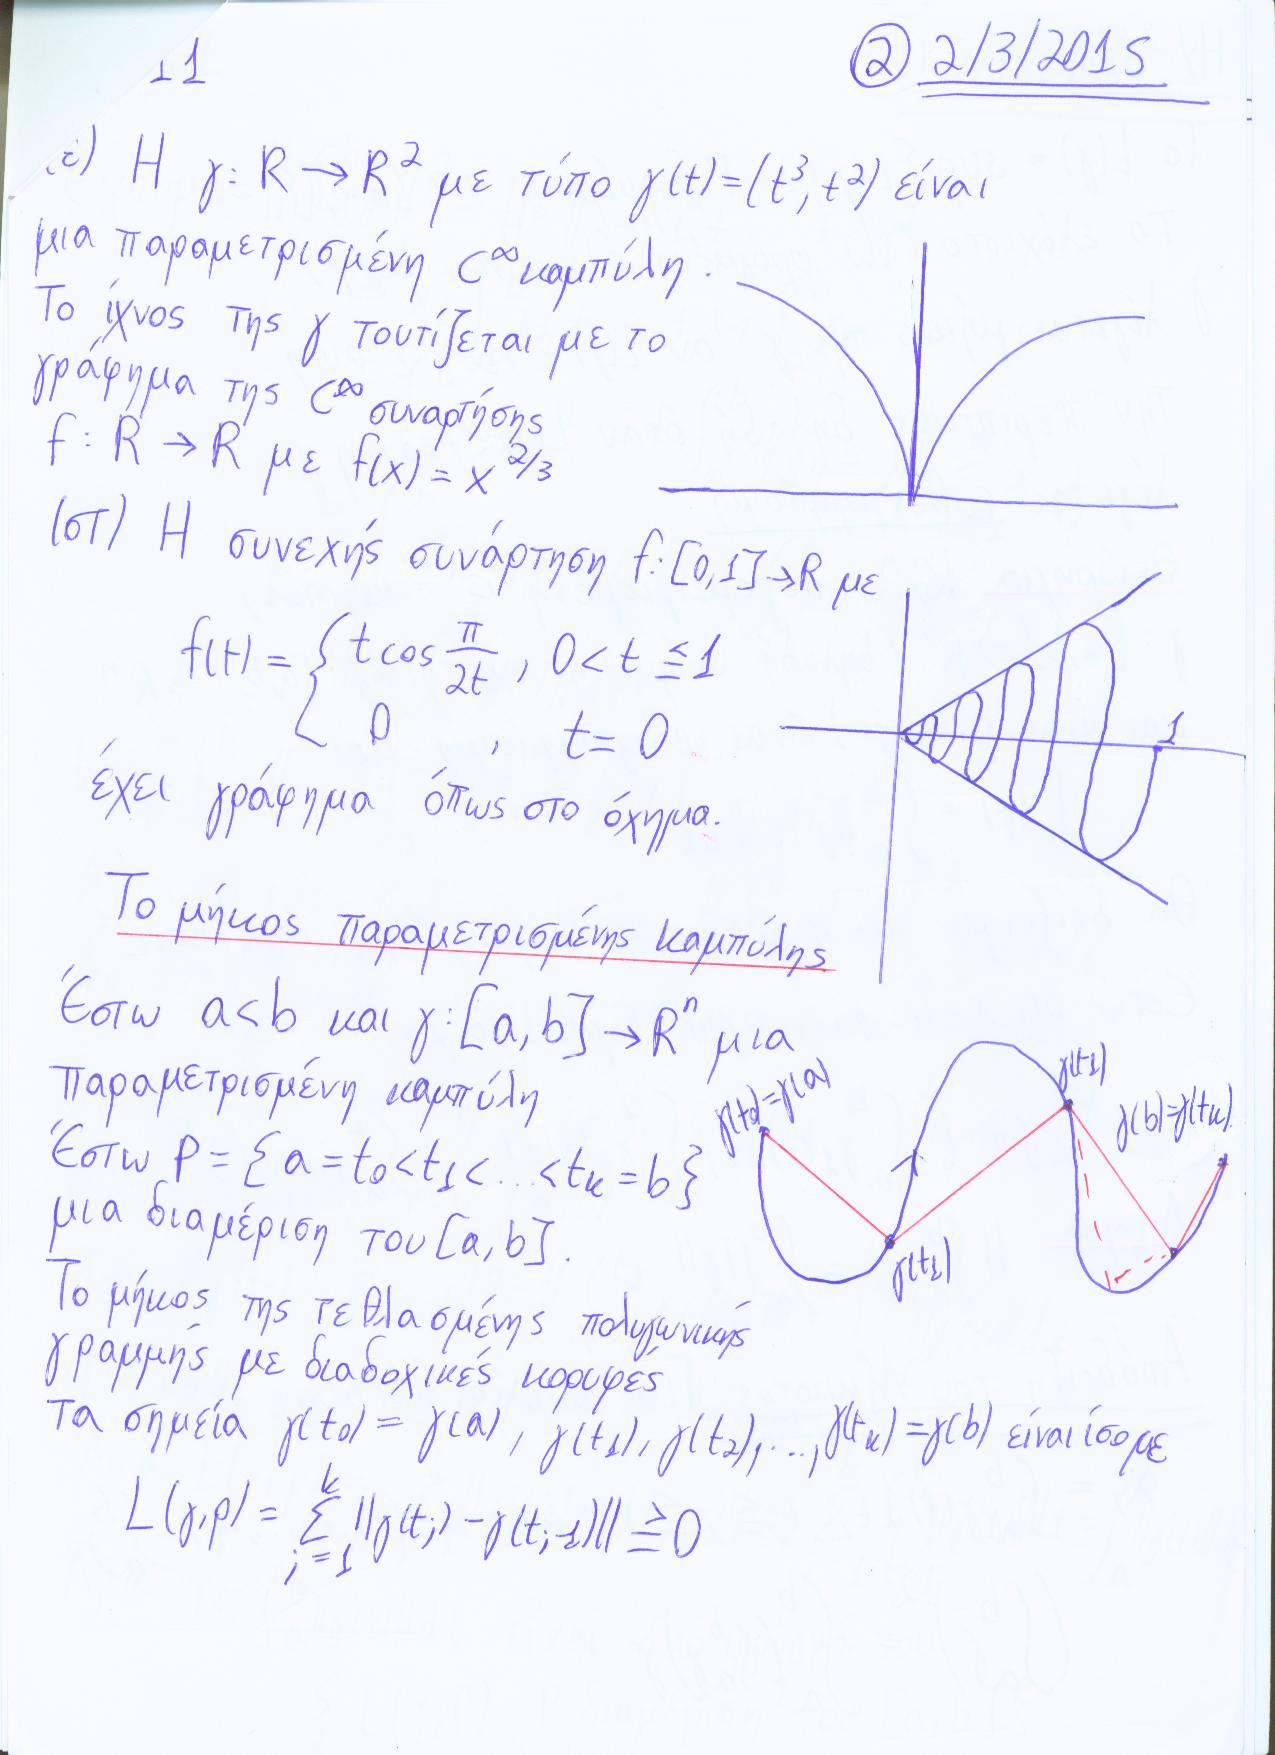 11
② 2/3/2015
(ε) Η γ: R → R² με τύπο γ(t) = (t³, t²) είναι
μια παραμετρισμένη C∞ καμπύλη.
Το ίχνος της γ τουτίζεται με το
γράφημα της C∞ συναρτήσης
f: R → R με f(x) = x^{2/3}
(στ) Η συνεχής συνάρτηση f: [0,1] → R με
f(t) = { t cos π/2t , 0 < t ≦ 1
0 , t = 0
έχει γράφημα όπως στο όχημα.
1
Το μήκος παραμετρισμένης καμπύλης
Έστω a < b και γ: [a, b] → Rⁿ μια
παραμετρισμένη καμπύλη
Έστω P = {a = t₀ < t₁ < ... < tκ = b}
μια διαμέριση του [a, b].
γ(t₀) = γ(a)
γ(t1)
γ(b) = γ(tκ)
γ(t1)
Το μήκος της τεθλασμένης πολυγωνικής
γραμμής με διαδοχικές κορυφές
τα σημεία γ(t₀) = γ(a), γ(t₁), γ(t₂), ..., γ(tκ) = γ(b) είναι ίσο με
L(γ, p) = Σ_{j=1}^{k} ||γ(tj) - γ(tj-1)|| ≧ 0